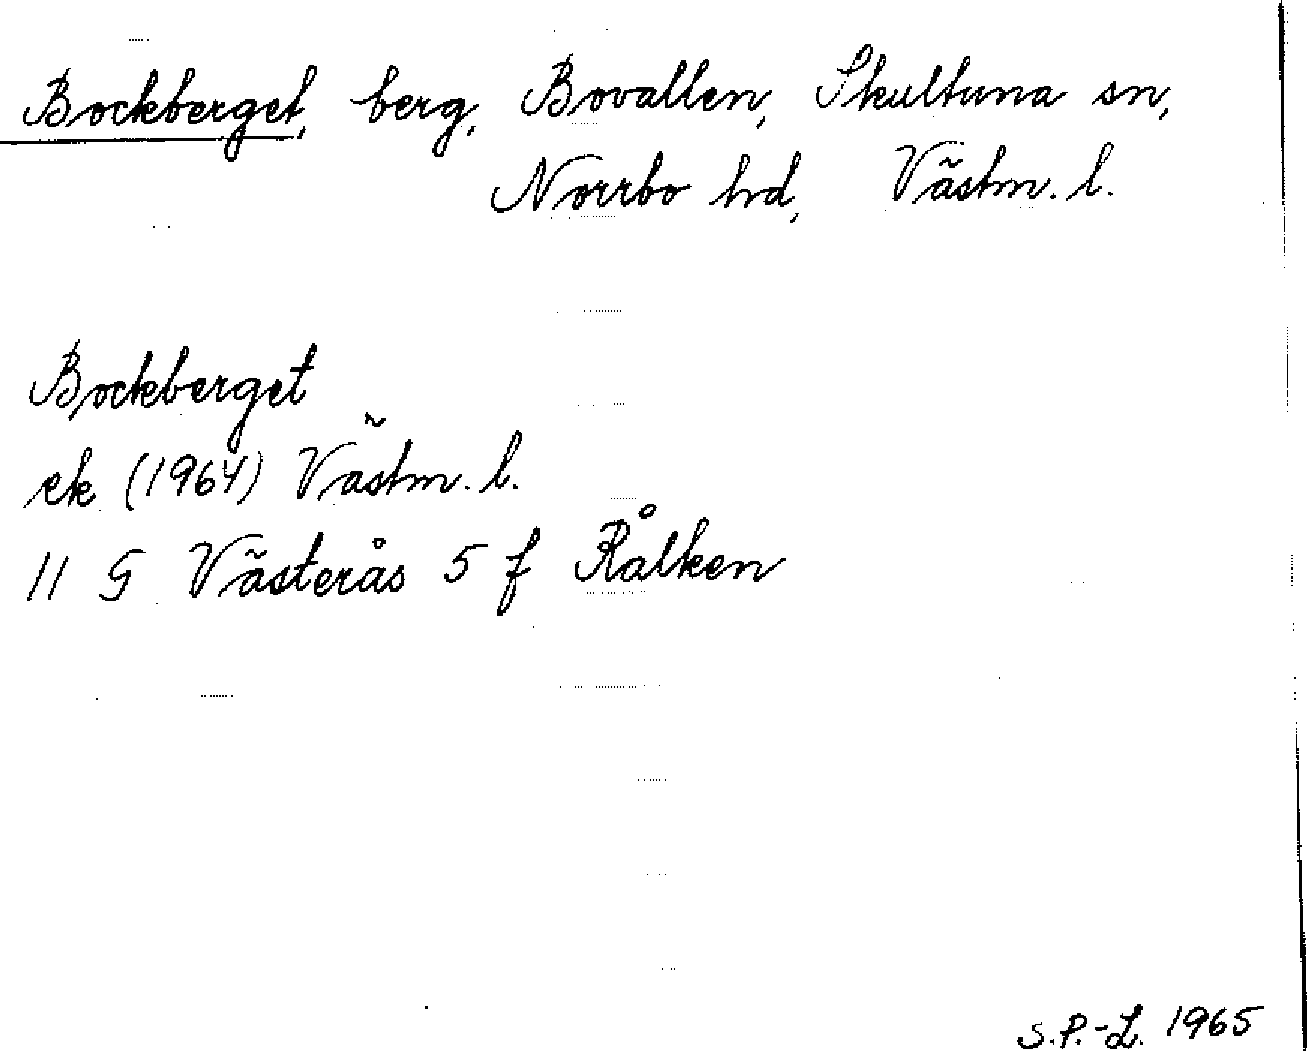 Bockberget, berg, Bovallen, Skultuna sn,
Norrbo hd, Västm. l.
Bockberget
ek (1964) Västm. l.
11 G Västerås 5 f Rålken
S.P.-L. 1965